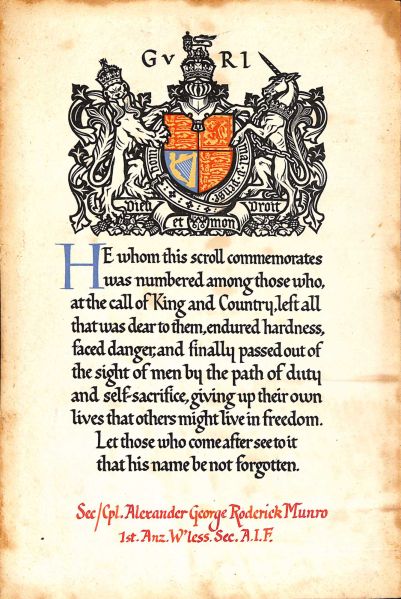 GV RI
Honi soit qui mal y pense
Dieu et mon droit
HE whom this scroll commemorates
was numbered among those who,
at the call of King and Country, left all
that was dear to them, endured hardness,
faced danger, and finally passed out of
the sight of men by the path of duty
and self-sacrifice, giving up their own
lives that others might live in freedom.
Let those who come after see to it
that his name be not forgotten.
Sec/Cpl. Alexander George Roderick Munro
1st. Anz. W'less. Sec. A.I.F.